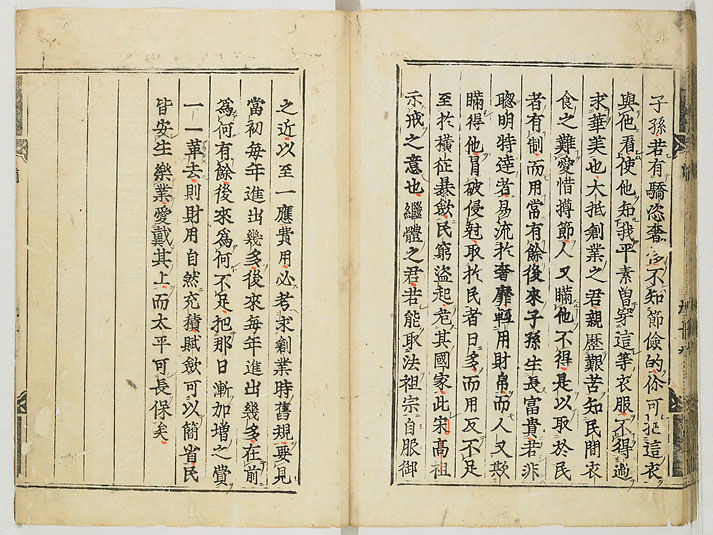 子孫若有驕恣奢淫不知節儉的你可把這衣
與他看使他知我平素曾穿這等衣服不得過
求華美也大抵創業之君親歷艱苦知民間衣
食之難愛惜撙節人又瞞他不得是以取於民
者有制而用常有餘後來子孫生長富貴若非
聰明特達者易流扵奢靡輕用財帛而人又欺
瞞得他冒破侵尅取扵民者日多而用反不足
至扵橫征暴斂民窮盜起危其國家此宋高祖
示戒之意也繼體之君若能取法祖宗自服御
之近以至一應費用必考求創業時舊規要見
當初每年進出幾多後來每年進出幾多在前
爲何有餘後來爲何不足把那日漸加增之費
一一革去則財用自然充積賦斂可以簡省民
皆安生樂業愛戴其上而太平可長保矣